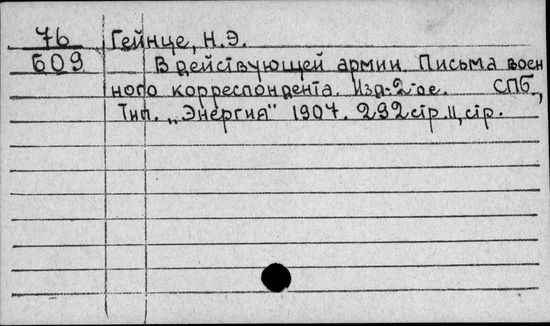 76 Гейнце, Н.Э.
609 В действующей армии. Письма воен
ного корреспондента. Изд-2-ое. СПБ.,
Тип. „Энергия" 1907. 292 стр. II, стр.